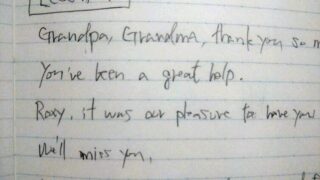 Grandpa, Grandma, thank you so
You've been a great help.
Roxy, it was our pleasure to have you
We'll miss you.